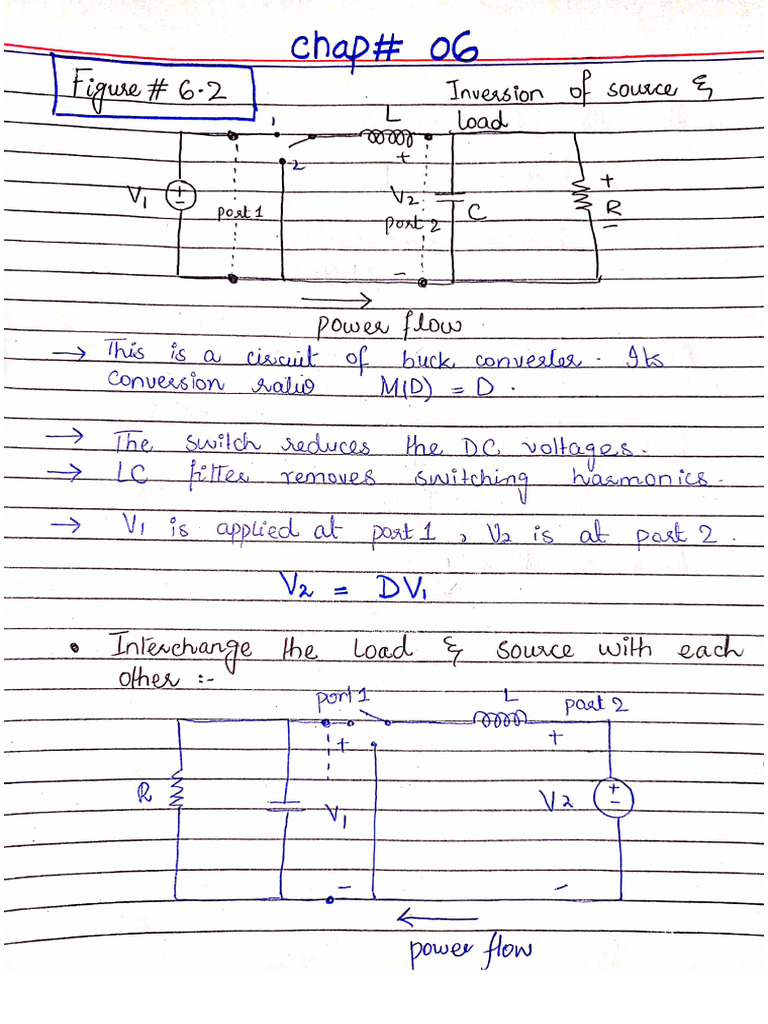 Chap# 06
Figure # 6.2
Inversion of source &
load
L
1
2
+
+
V1
port 1
V2
port 2
C
R
-
-
power flow
→ This is a circuit of buck converter. Its
conversion ratio M(D) = D.
→ The switch reduces the DC voltages.
→ LC filter removes switching harmonics.
→ V1 is applied at port 1, V2 is at port 2.
V2 = DV1
• Interchange the load & source with each
other :-
port 1
L
port 2
+
+
R
V1
V2
+
-
-
-
power flow